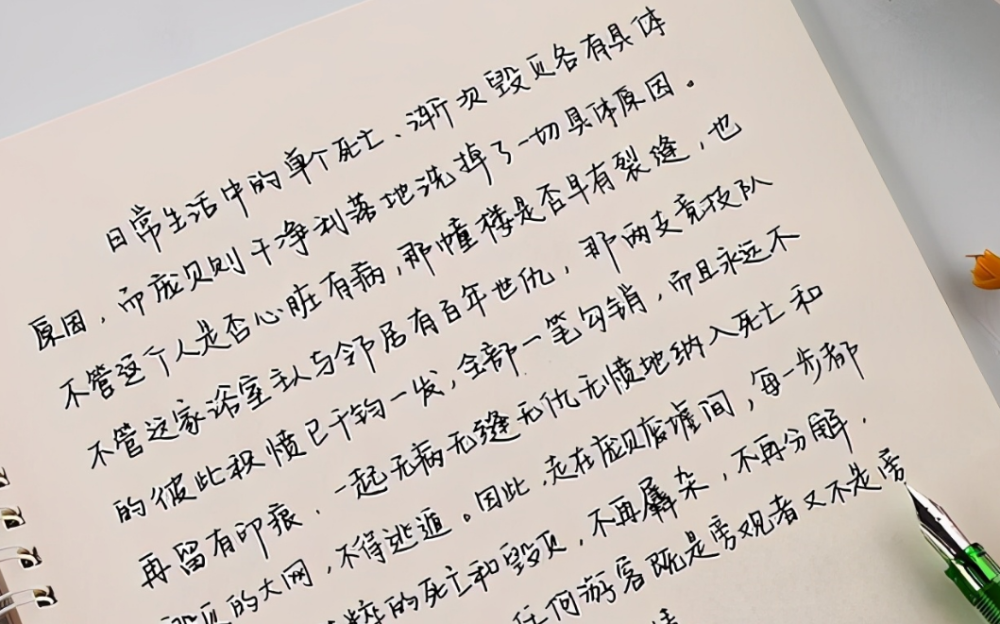 日常生活中的单个死亡、渐次毁灭各有具体
原因，而庞贝则干净利落地洗掉了一切具体原因。
不管这个人是否心脏有病，那幢楼是否早有裂缝，也
不管这家浴室主人与邻居有百年世仇，那两支竞技队
的彼此积愤已千钧一发，全部一笔勾销，而且永远不
再留有印痕，一起无病无缝无仇无愤地纳入死亡和
毁灭的大网，不得逃遁。因此，走在庞贝废墟间，每一步都
粹的死亡和毁灭，不再羼杂，不再分解，
任何游客既是旁观者又不是旁